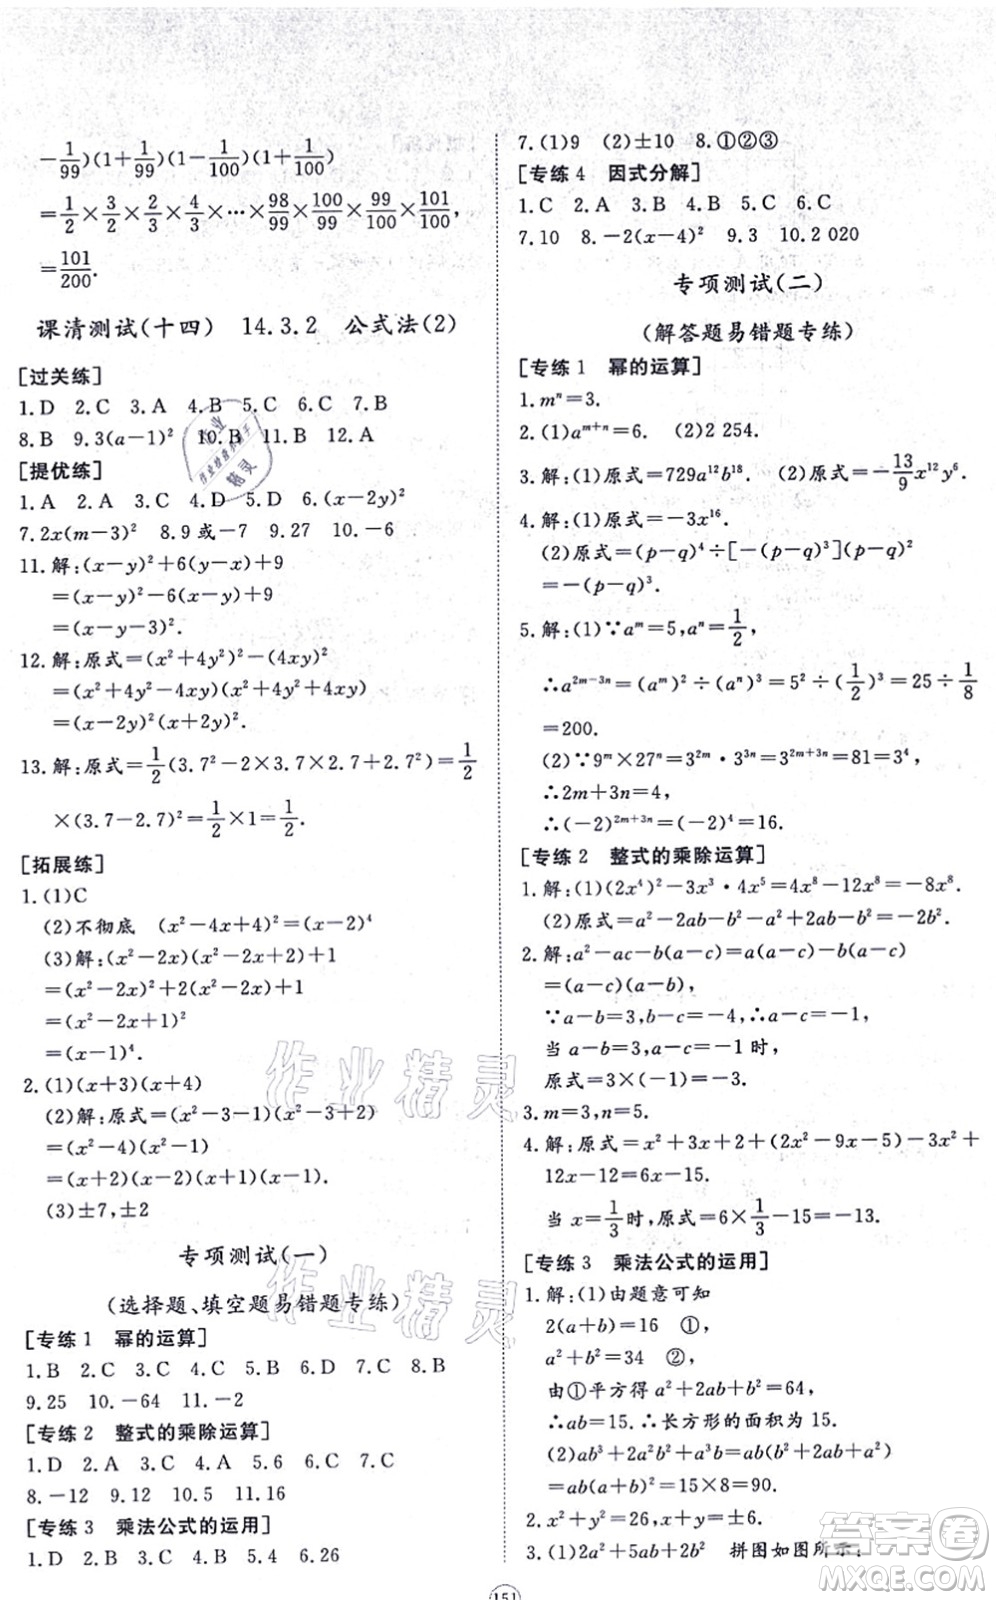 -1/99)(1+1/99)(1-1/100)(1+1/100)
=1/2×3/2×2/3×4/3×⋯×98/99×100/99×99/100×101/100,
=101/200.
课清测试(十四) 14.3.2 公式法(2)
[过关练]
1.D 2.C 3.A 4.B 5.C 6.C 7.B
8.B 9.3(a-1)² 10.B 11.B 12.A
[提优练]
1.A 2.A 3.C 4.D 5.D 6.(x-2y)²
7.2x(m-3)² 8.9或-7 9.27 10.-6
11.解:(x-y)²+6(y-x)+9
=(x-y)²-6(x-y)+9
=(x-y-3)².
12.解:原式=(x²+4y²)²-(4xy)²
=(x²+4y²-4xy)(x²+4y²+4xy)
=(x-2y)²(x+2y)².
13.解:原式=1/2(3.7²-2×3.7×2.7+2.7²)=1/2
×(3.7-2.7)²=1/2×1=1/2.
[拓展练]
1.(1)C
(2)不彻底 (x²-4x+4)²=(x-2)⁴
(3)解:(x²-2x)(x²-2x+2)+1
=(x²-2x)²+2(x²-2x)+1
=(x²-2x+1)²
=(x-1)⁴.
2.(1)(x+3)(x+4)
(2)解:原式=(x²-3-1)(x²-3+2)
=(x²-4)(x²-1)
=(x+2)(x-2)(x+1)(x-1).
(3)±7,±2
专项测试(一)
(选择题、填空题易错题专练)
[专练1 幂的运算]
1.B 2.C 3.C 4.C 5.B 6.D 7.C 8.B
9.25 10.-64 11.2
[专练2 整式的乘除运算]
1.D 2.A 3.C 4.A 5.6 6.D 7.C
8.-12 9.12 10.5 11.16
[专练3 乘法公式的运用]
1.D 2.D 3.A 4.B 5.4 6.26
7.(1)9 (2)±10 8.①②③
[专练4 因式分解]
1.C 2.A 3.D 4.B 5.C 6.C
7.10 8.-2(x-4)² 9.3 10.2 020
专项测试(二)
(解答题易错题专练)
[专练1 幂的运算]
1.mⁿ=3.
2.(1)aᵐ⁺ⁿ=6. (2)2 254.
3.解:(1)原式=729a¹²b¹⁸. (2)原式=-13/9x¹²y⁶.
4.解:(1)原式=-3x¹⁶.
(2)原式=(p-q)⁴÷[-(p-q)³](p-q)²
=-(p-q)³.
5.解:(1)∵aᵐ=5,aⁿ=1/2,
∴a²ᵐ⁻³ⁿ=(aᵐ)²÷(aⁿ)³=5²÷(1/2)³=25÷1/8
=200.
(2)∵9ᵐ×27ⁿ=3²ᵐ·3³ⁿ=3²ᵐ⁺³ⁿ=81=3⁴
∴2m+3n=4,
∴(-2)²ᵐ⁺³ⁿ=(-2)⁴=16.
[专练2 整式的乘除运算]
1.解:(1)(2x⁴)²-3x³·4x⁵=4x⁸-12x⁸=-8x⁸.
(2)原式=a²-2ab-b²-a²+2ab-b²=-2b².
2.解:a²-ac-b(a-c)=a(a-c)-b(a-c)
=(a-c)(a-b),
∵a-b=3,b-c=-4,∴a-c=-1,
当a-b=3,a-c=-1时,
原式=3×(-1)=-3.
3.m=3,n=5.
4.解:原式=x²+3x+2+(2x²-9x-5)-3x²+
12x-12=6x-15.
当x=1/3时,原式=6×1/3-15=-13.
[专练3 乘法公式的运用]
1.解:(1)由题意可知
2(a+b)=16 ①,
a²+b²=34 ②,
由①平方得a²+2ab+b²=64,
∴ab=15.∴长方形的面积为15.
(2)ab³+2a²b²+a³b=ab(b²+2ab+a²)
=ab(a+b)²=15×8²=90.
2.x²+y²=26,x+y=±6.
3.(1)2a²+5ab+2b² 拼图如图所示:
151
作业精灵
作业精灵
作业精灵
答案圈
MXQE.COM